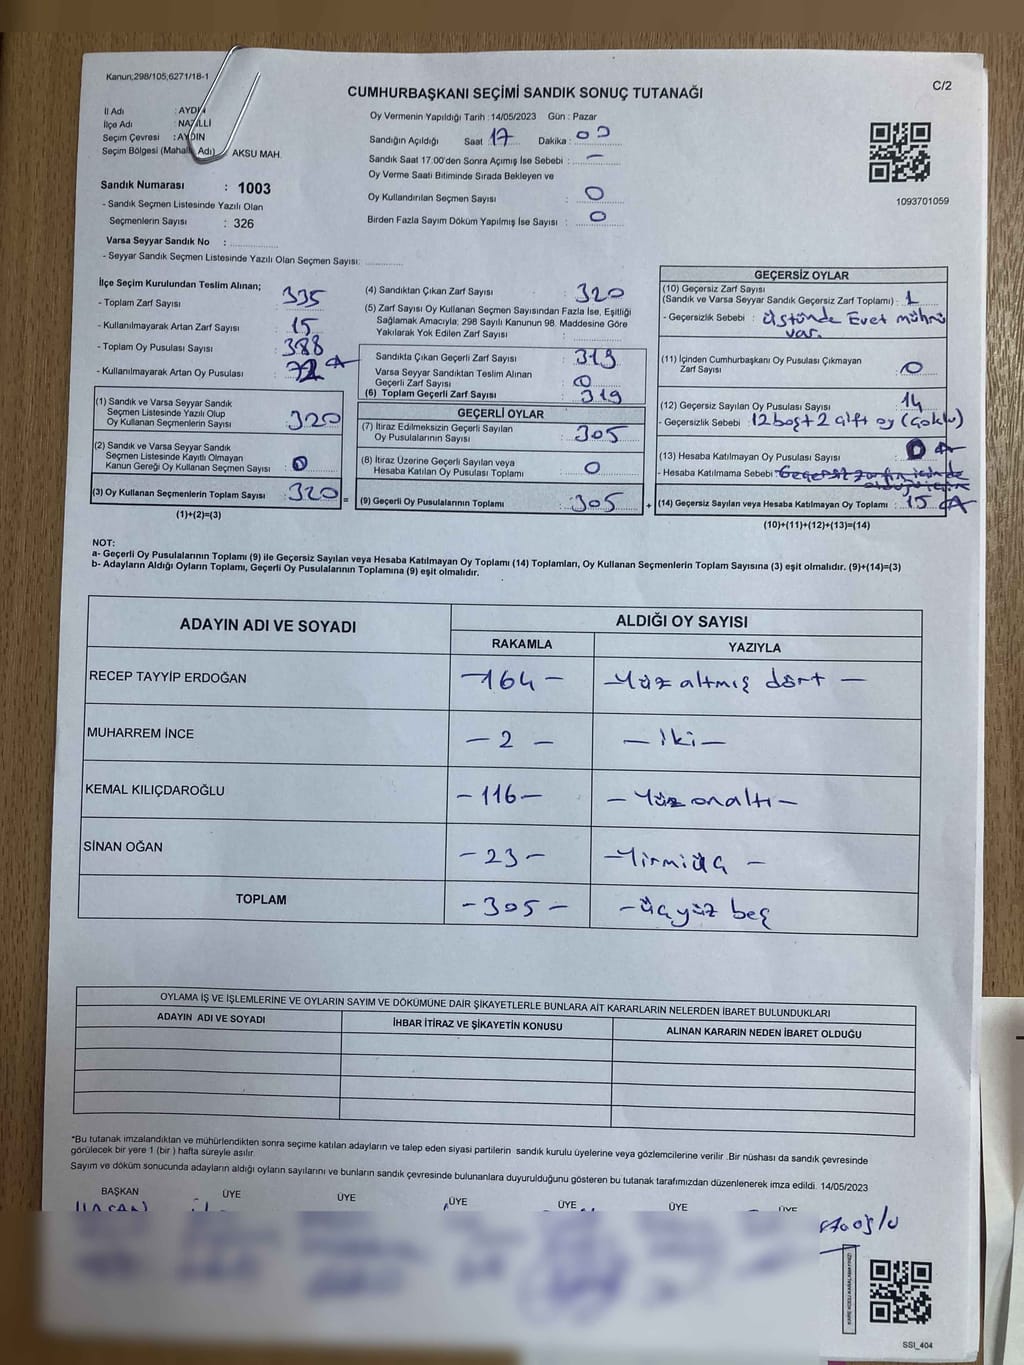 Kanun;298/105,6271/18-1
C/2
CUMHURBAŞKANI SEÇİMİ SANDIK SONUÇ TUTANAĞI
İl Adı : AYDIN
İlçe Adı : NAZİLLİ
Seçim Çevresi : AYDIN
Seçim Bölgesi (Mahalle Adı) : AKSU MAH.
Sandık Numarası : 1003
- Sandık Seçmen Listesinde Yazılı Olan
Seçmenlerin Sayısı : 326
Varsa Seyyar Sandık No :
- Seyyar Sandık Seçmen Listesinde Yazılı Olan Seçmen Sayısı:
Oy Vermenin Yapıldığı Tarih : 14/05/2023 Gün : Pazar
Sandığın Açıldığı Saat : 17 Dakika : 00
Sandık Saat 17:00'den Sonra Açımış İse Sebebi : —
Oy Verme Saati Bitiminde Sırada Bekleyen ve
Oy Kullandırılan Seçmen Sayısı : 0
Birden Fazla Sayım Döküm Yapılmış İse Sayısı : 0
1093701059
İlçe Seçim Kurulundan Teslim Alınan;
- Toplam Zarf Sayısı : 335
- Kullanılmayarak Artan Zarf Sayısı : 15
- Toplam Oy Pusulası Sayısı : 388
- Kullanılmayarak Artan Oy Pusulası :
(1) Sandık ve Varsa Seyyar Sandık
Seçmen Listesinde Yazılı Olup
Oy Kullanan Seçmenlerin Sayısı : 320
(2) Sandık ve Varsa Seyyar Sandık
Seçmen Listesinde Kayıtlı Olmayan
Kanun Gereği Oy Kullanan Seçmen Sayısı : 0
(3) Oy Kullanan Seçmenlerin Toplam Sayısı : 320 =
(1)+(2)=(3)
(4) Sandıktan Çıkan Zarf Sayısı : 320
(5) Zarf Sayısı Oy Kullanan Seçmen Sayısından Fazla İse, Eşitliği
Sağlamak Amacıyla; 298 Sayılı Kanunun 98. Maddesine Göre
Yakılarak Yok Edilen Zarf Sayısı :
Sandıkta Çıkan Geçerli Zarf Sayısı : 319
Varsa Seyyar Sandıktan Teslim Alınan
Geçerli Zarf Sayısı : 0
(6) Toplam Geçerli Zarf Sayısı : 319
GEÇERLİ OYLAR
(7) İtiraz Edilmeksizin Geçerli Sayılan
Oy Pusulalarının Sayısı : 305
(8) İtiraz Üzerine Geçerli Sayılan veya
Hesaba Katılan Oy Pusulası Toplamı : 0
(9) Geçerli Oy Pusulalarının Toplamı : 305 +
GEÇERSİZ OYLAR
(10) Geçersiz Zarf Sayısı
(Sandık ve Varsa Seyyar Sandık Geçersiz Zarf Toplamı) : 1
- Geçersizlik Sebebi : üstünde Evet mührü
var.
(11) İçinden Cumhurbaşkanı Oy Pusulası Çıkmayan
Zarf Sayısı : 0
(12) Geçersiz Sayılan Oy Pusulası Sayısı : 14
- Geçersizlik Sebebi : 12 boş + 2 çift oy (çoklu)
(13) Hesaba Katılmayan Oy Pusulası Sayısı : 0
- Hesaba Katılmama Sebebi : Geçersiz zarfın içinde
olduğu için
(14) Geçersiz Sayılan veya Hesaba Katılmayan Oy Toplamı : 15
(10)+(11)+(12)+(13)=(14)
NOT:
a- Geçerli Oy Pusulalarının Toplamı (9) ile Geçersiz Sayılan veya Hesaba Katılmayan Oy Toplamı (14) Toplamları, Oy Kullanan Seçmenlerin Toplam Sayısına (3) eşit olmalıdır. (9)+(14)=(3)
b- Adayların Aldığı Oyların Toplamı, Geçerli Oy Pusulalarının Toplamına (9) eşit olmalıdır.
ADAYIN ADI VE SOYADI
ALDIĞI OY SAYISI
RAKAMLA YAZIYLA
RECEP TAYYİP ERDOĞAN -164- -Yüz altmış dört-
MUHARREM İNCE -2- -iki-
KEMAL KILIÇDAROĞLU -116- -Yüz onaltı-
SİNAN OĞAN -23- -Yirmiüç-
TOPLAM -305- -üçyüz beş
OYLAMA İŞ VE İŞLEMLERİNE VE OYLARIN SAYIM VE DÖKÜMÜNE DAİR ŞİKAYETLERLE BUNLARA AİT KARARLARIN NELERDEN İBARET BULUNDUKLARI
ADAYIN ADI VE SOYADI İHBAR İTİRAZ VE ŞİKAYETİN KONUSU ALINAN KARARIN NEDEN İBARET OLDUĞU
*Bu tutanak imzalandıktan ve mühürlendikten sonra seçime katılan adayların ve talep eden siyasi partilerin sandık kurulu üyelerine veya gözlemcilerine verilir .Bir nüshası da sandık çevresinde
görülecek bir yere 1 (bir ) hafta süreyle asılır.
Sayım ve döküm sonucunda adayların aldığı oyların sayılarını ve bunların sandık çevresinde bulunanlara duyurulduğunu gösteren bu tutanak tarafımızdan düzenlenerek imza edildi. 14/05/2023
BAŞKAN ÜYE ÜYE ÜYE ÜYE ÜYE ÜYE
SSI_404